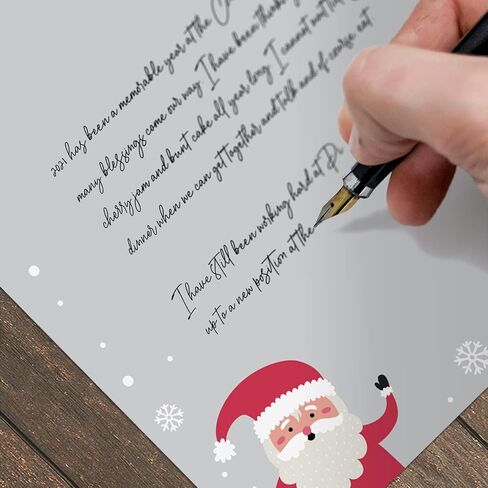 2021 has been a memorable year at the
many blessings come our way I have been
cherry jam and bunt cake all year long I cannot wait
dinner when we can get together and talk and of course eat
I have still been working hard at
up to a new position at the